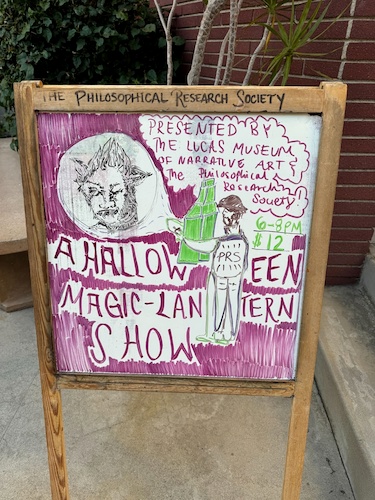 THE PHILOSOPHICAL RESEARCH SOCIETY
PRESENTED BY
THE LUCAS MUSEUM
OF NARRATIVE ART &
The Philosophical
Research
Society
6-8PM
$12
PRS
A HALLOWEEN
MAGIC-LANTERN
SHOW